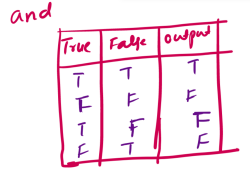 and
True False output
T T T
F F F
T F F
F T F